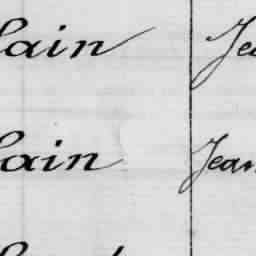 lain Jea
lain Jean